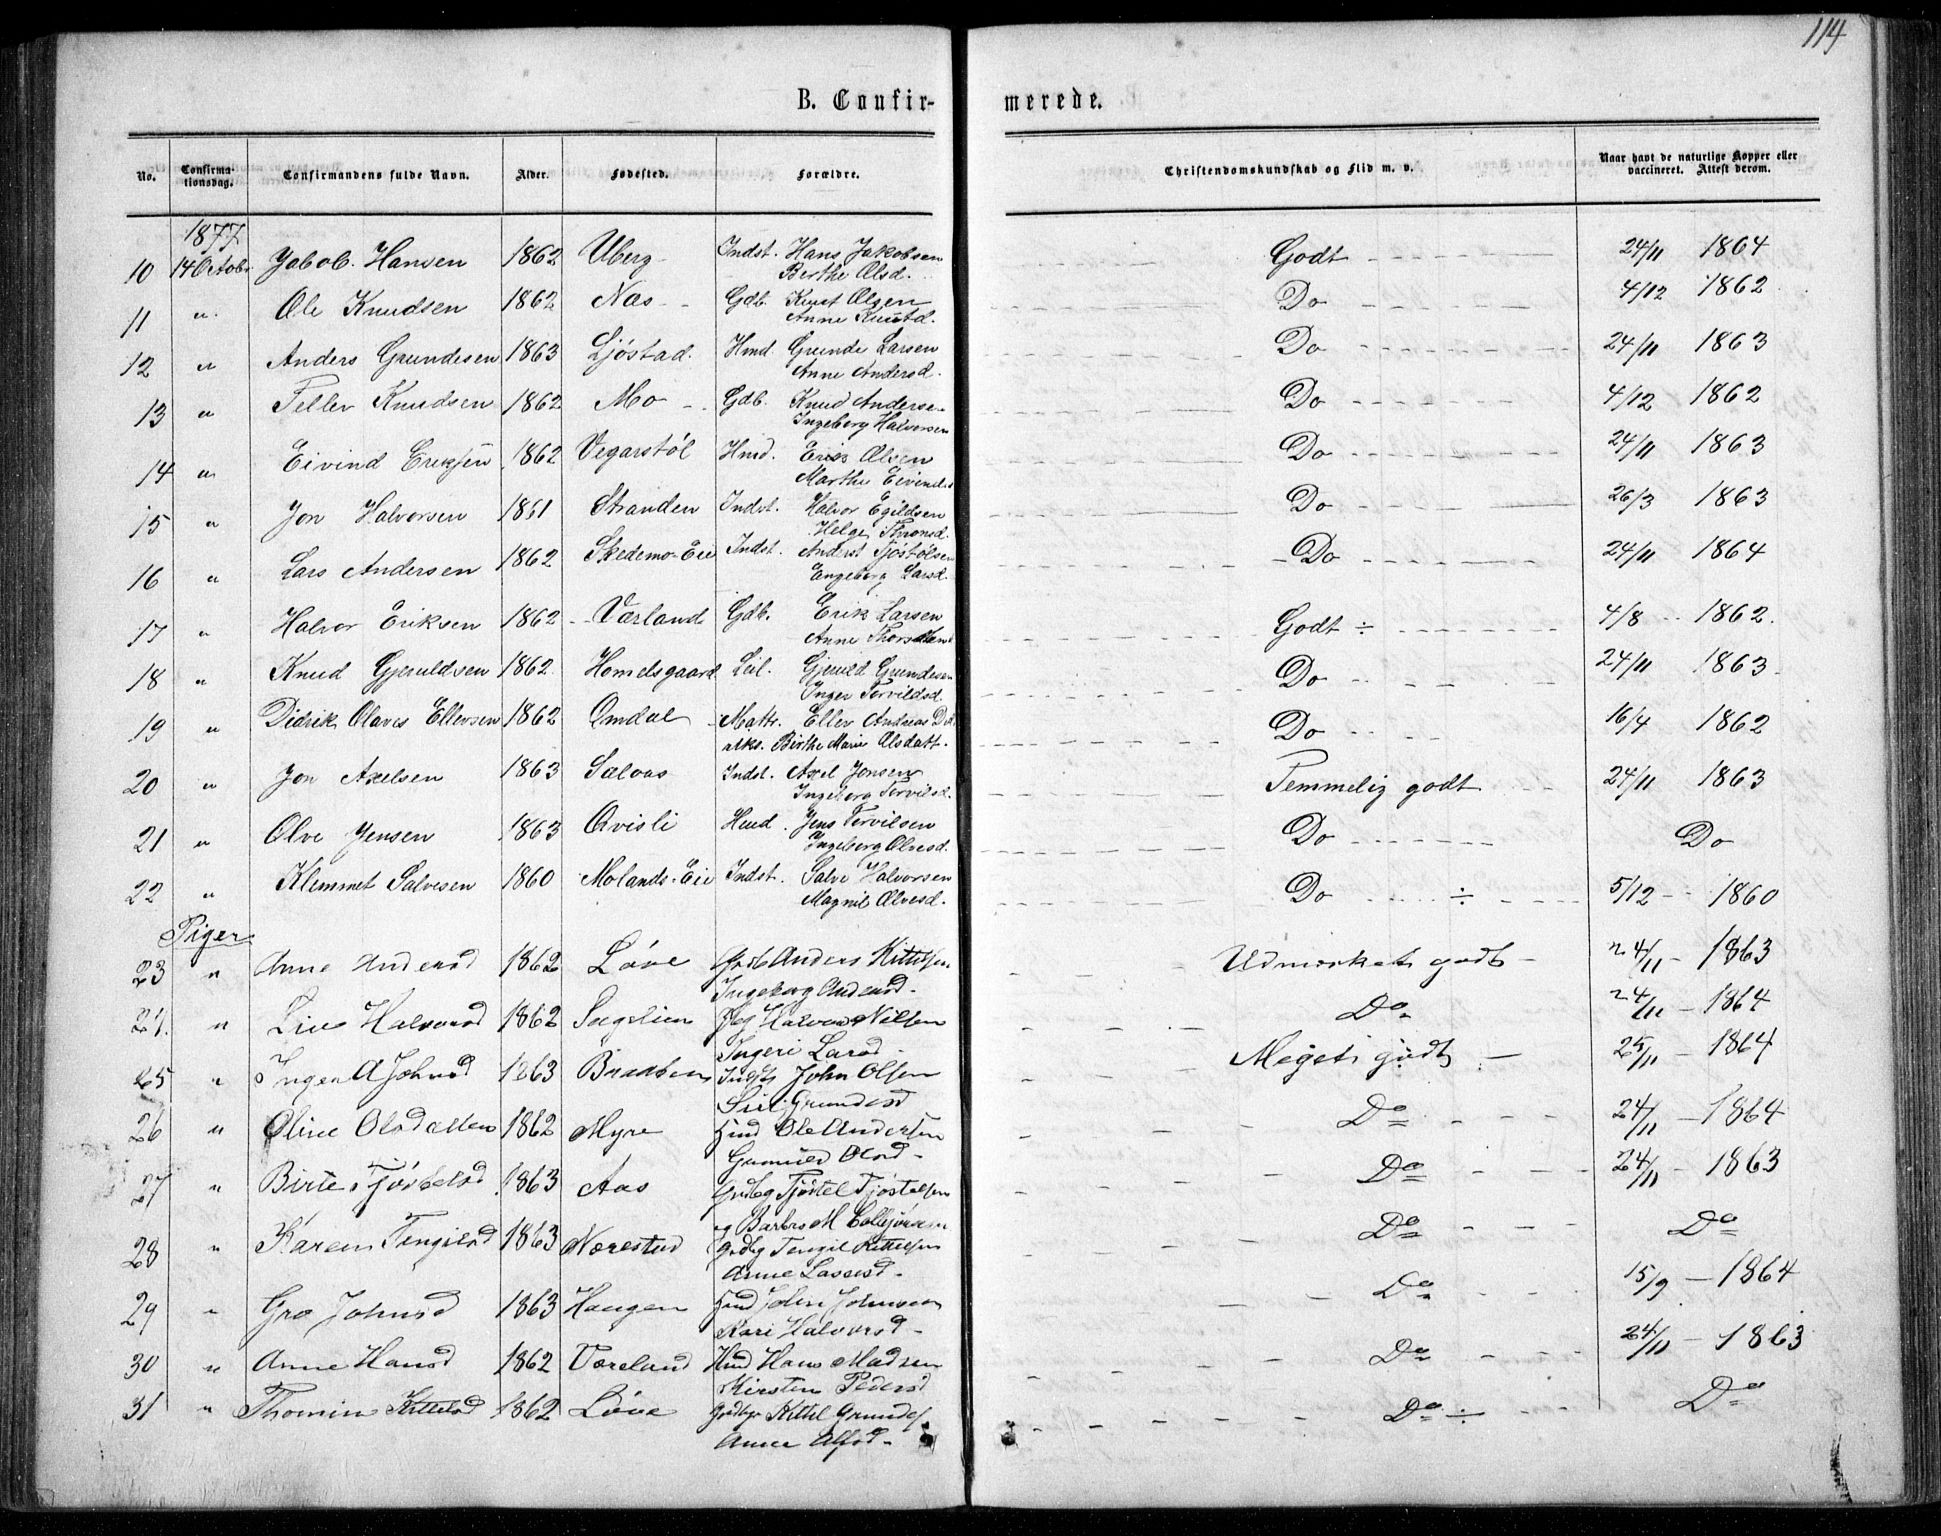 114
B. Confirmerede.
No. Confirmationsdag. Confirmandens fulde Navn. Alder. Fødested. Forældre. Christendomskundskab og Flid m. v. Naar havt de naturlige Kopper eller vaccineret. Attest derom.
1877
10 14 Octobr Jabob. Hansen 1862 Uberg Indst. Hans Jakobsen Godt 24/11 1864
Berthe Olsd.
11 " Ole Knudsen 1862 Næs Gdb. Knut Olsen Do 4/12 1862
Anne Knutd.
12 " Anders Grundesen 1863 Ljöstad Hmd. Grunde Larsen Do 24/11 1863
Anne Andersd.
13 " Tellev Knudsen 1862 Mo Gdb. Knud Andersen Do 4/12 1862
Ingeborg Halvorsen
14 " Eivind Eriksen 1862 Vegarstöl Hmd. Erik Olsen Do 24/11 1863
Marthe Eivindsd
15 " Jon Halvorsen 1861 Stranden Indst. Halvor Egildsen Do 26/3 1863
Helge Thronsd.
16 " Lars Andersen 1862 Skedemo-Eie Indst. Anderst Tjöstölsen Do 24/11 1864
Engeborg Larsd.
17 " Halvor Eriksen 1862 Varland Gdb. Erik Larsen Godt ÷ 4/8 1862.
Anne
18 " Knud Gjeruldsen 1862 Homelsgaard Leil. Gjeruld Grundesen Do 24/11 1863
Inger Torvildsd.
19 " Didrik Olaves Ellevsen 1862 Omdal Matr. Ellev Andreas Do 16/4 1862
Birthe Marie Olsdatt.
20 " Jon Axelsen 1863 Sælaas Indst. Axel Jonsen Temmelig godt 24/11 1863
Ingeborg Torvilsd.
21 " Olve Jensen 1863 Qvisli Hmd. Jens Torvilsen Do Do
Ingeborg Olvesd.
22 " Klemmet Salvesen 1860 Molands-Eie Indst. Salve Halvorsen Do ÷ 5/12 1860
Magnil Olvesd.
Piger
23 " Anne Andersd 1862 Löve Grdb Anders Kittelsen Udmærket godt 24/11 1863
Ingeborg Andersd
24. " Live Halvorsd 1862 Songelien Halvor Nilsen Do 24/11 1864
Ingeri Larsd
25 " Inger A Johnsd 1863 Indst John Olsen Meget godt 25/11 1864
Siri Grundesd
26 " Oline Olsdatten 1862 Myre Hmd Ole Andersen Do 24/11 1864
Gunnild Olsd
27 " Birte Tjöstelsd 1863 Aas Grdbg Tjöstel Tjöstelsen Do 24/11 1863
og Barbro M
28 " Karen Tengilsd 1863 Nærestad Grdbg Tengil Kittelsen Do Do
Anne Lassesd
29 " Gro Johnsd 1863 Haugen Hmd John Johnsen Do 15/9 1864
Kari Halvorsd
30 " Anne Hansd 1862 Væreland Hmd Hans Madsen Do 24/11 1863
Kirsten Pedersd
31 " Thomin Kittelsd 1862 Löve Grdbg Kittel Grundes Do ÷ Do
Anne